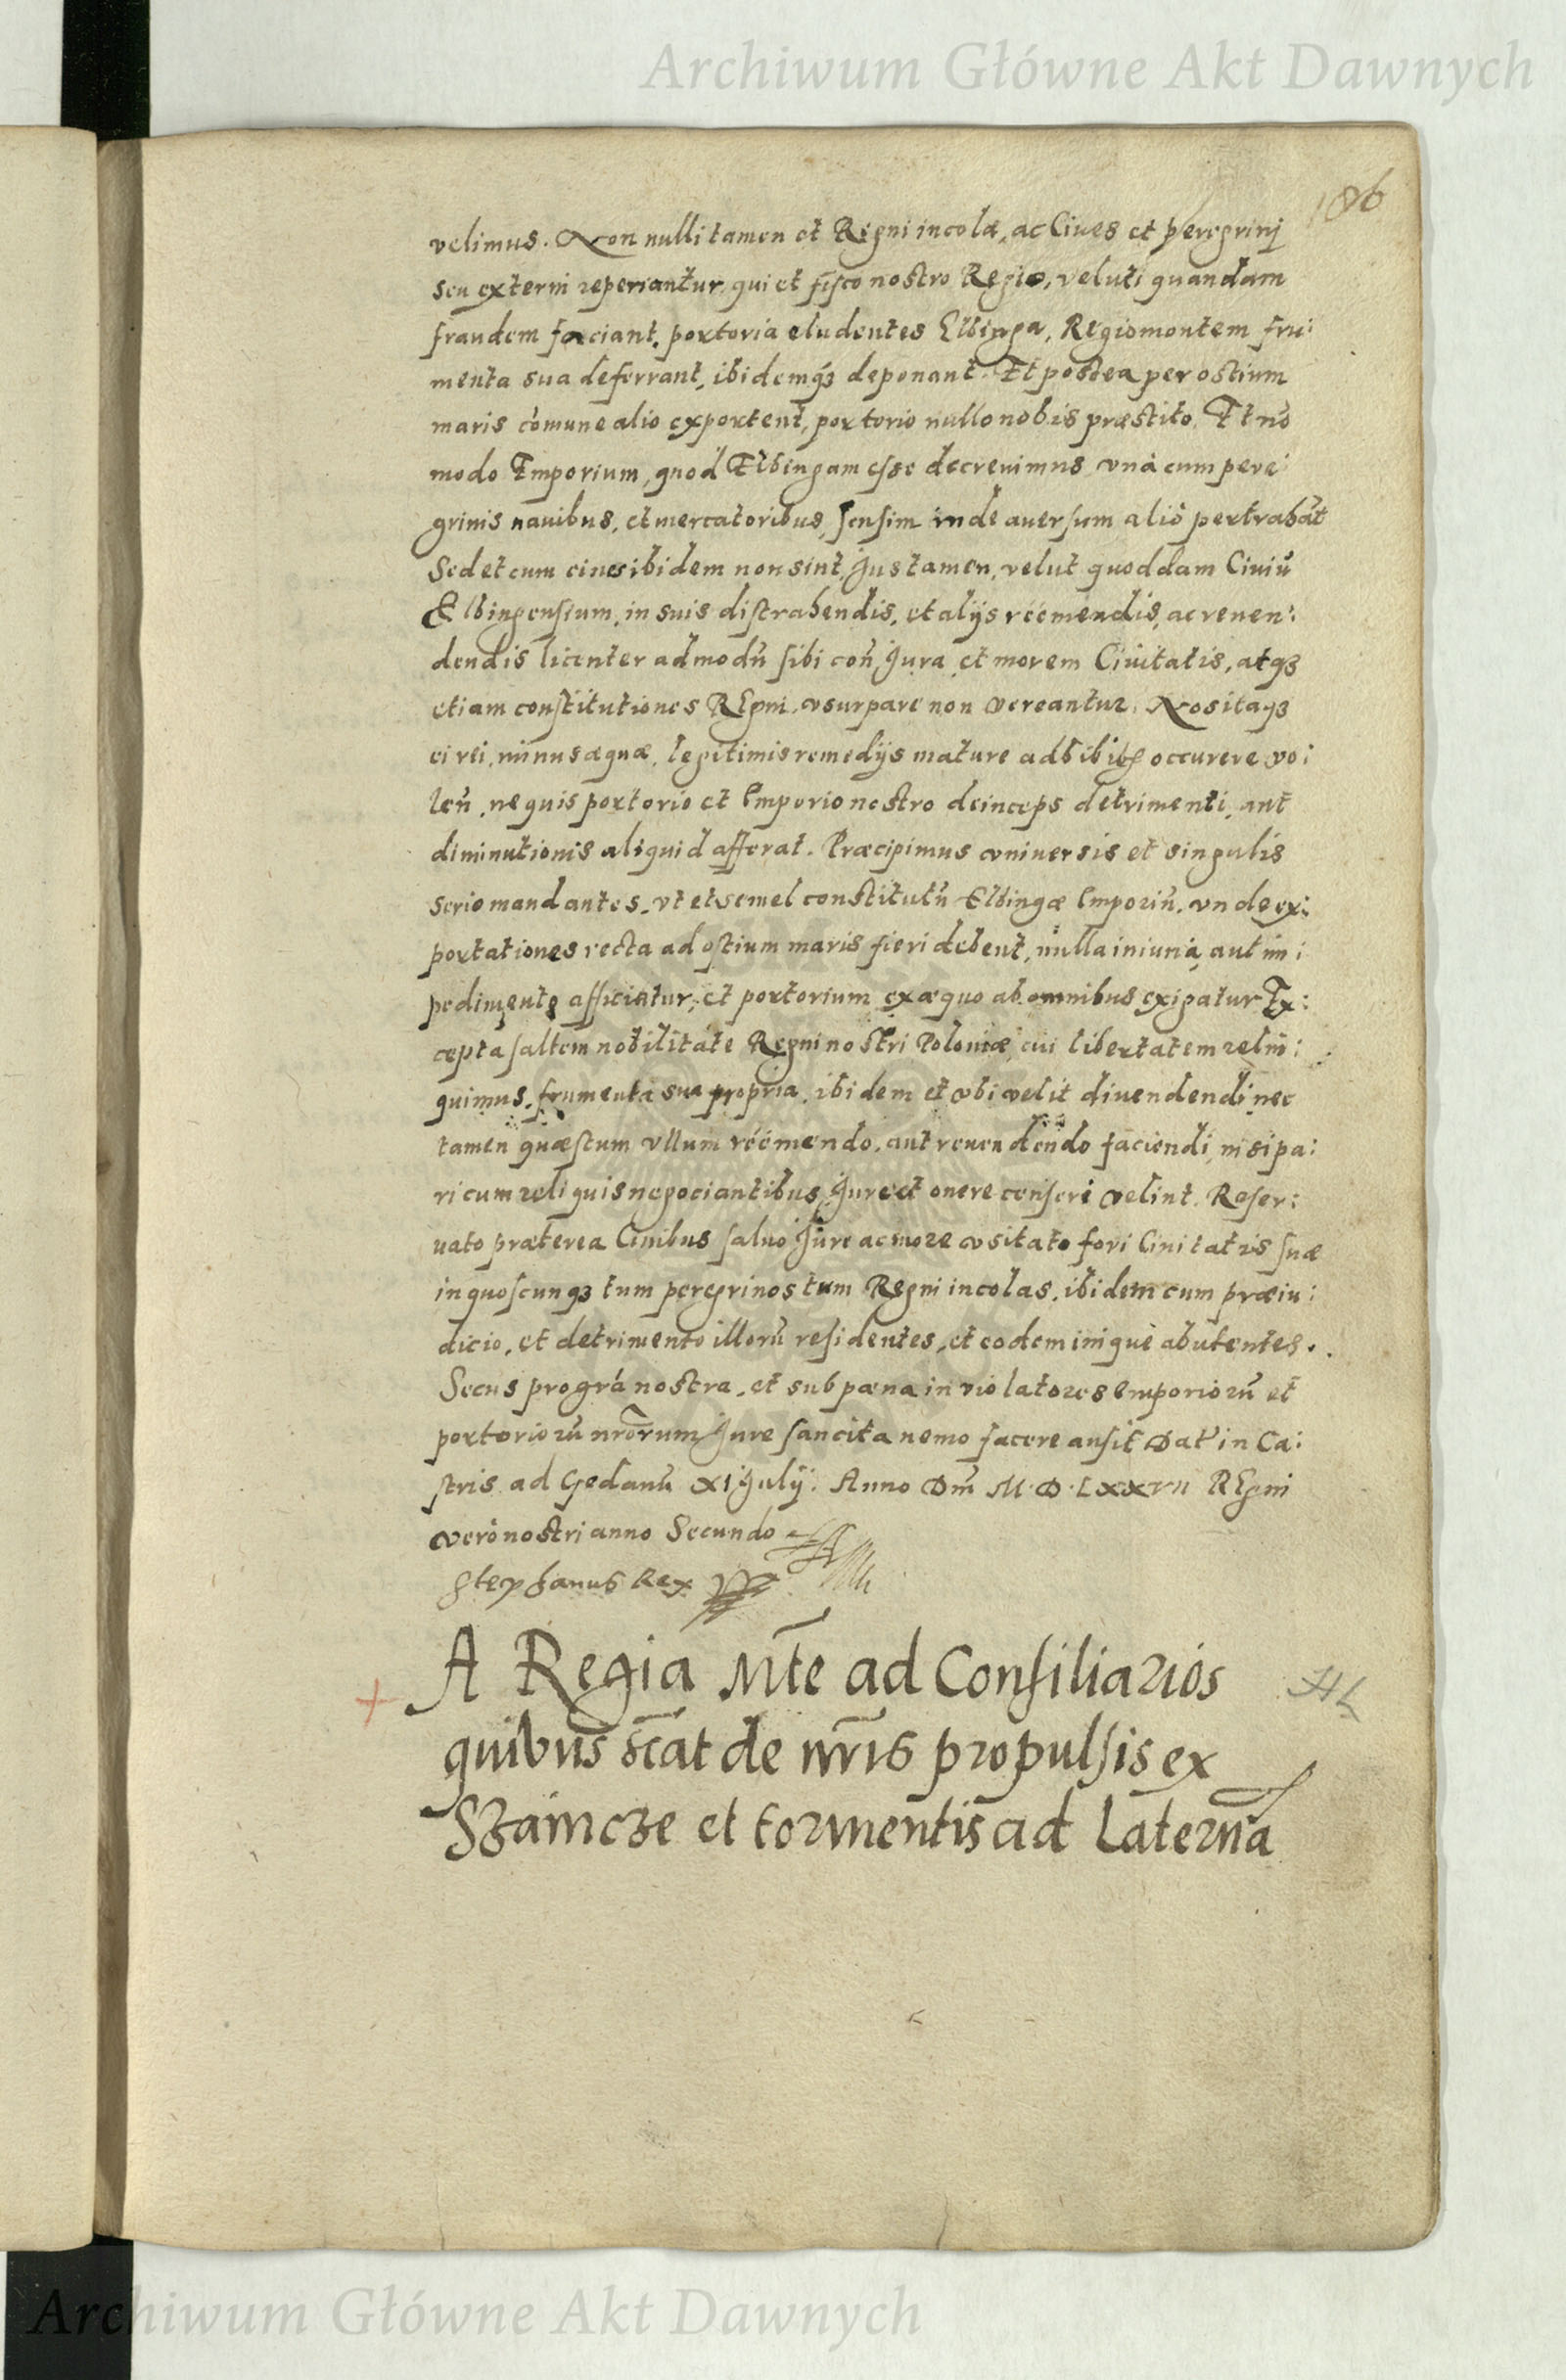 Archiwum Główne Akt Dawnych
186
velimus. Non nulli tamen et Regni incolæ, ac Ciues et peregrinj
seu externi reperiantur, qui et fisco nostro Regio, veluti quandam
fraudem faciant, portoria eludentes Elbinga, Regiomontem fru:
menta sua deferrant, ibidemqꝫ deponant. Et postea per ostium
maris cōmune alio exportent, portorio nullo nobis præstito. Et nō
modo Emporium, quod Elbingam esse decreuimus vnà cum pere:
grinis nauibus, et mercatoribus, sensim inde auersum aliò pertrahāt
Sed et cum ciues ibidem non sint, Jus tamen, velut quoddam Ciuiū
Elbingensium, in suis distrahendis, et alijs reëmendis, ac reuen:
dendis licenter admodū sibi coñ Jura, et morem Ciuitatis, atqꝫ
etiam constitutiones REgni vsurpare non vereantur. Nos itaqꝫ
ei rei, minus æquæ, legitimis remedijs mature adhibitis occurere vo:
leñ, ne quis portorio et Emporio nostro deinceps detrimenti, aut
diminutionis aliquid afferat. Præcipimus vniuersis et singulis
serio mandantes, vt et semel constitutū Elbingæ Emporiū, vnde ex:
portationes recta ad ostium maris fieri debent, nulla iniuria, aut im:
pedimento afficiatur, et portorium ex æquo ab omnibus exigatur Ex:
cepta saltem nobilitate Regni nostri Poloniæ, cui libertatem relin:
quimus, frumenta sua propria, ibidem et vbi velit diuendendi nec
tamen quæstum vllum reëmendo, aut reuendendo faciendi, nisi pa:
ri cum reliquis negociantibus Jure et onere censeri velint. Reser:
uato præterea Ciuibus saluo Jure ac more vsitato fori Ciuitatis suæ
in quoscunqꝫ tum peregrinos tum Regni incolas, ibidem cum præiu:
dicio, et detrimento illorū residentes, et eodem iniquè abutentes.
Secus pro grā nostra, et sub pæna in violatores Emporiorū et
portoriorū nrōrum Jure sancita nemo facere ausit Dat in Ca:
stris ad Gedanū XI Julij. Anno Dm̄ M.D.LXXVII REgni
verò nostri anno Secundo
Stephanus Rex
A Regia Mte ad Consiliarios
quibus scāt de nr̄is propulsis ex
Szaincze et tormentis ad Laternā
Archiwum Główne Akt Dawnych